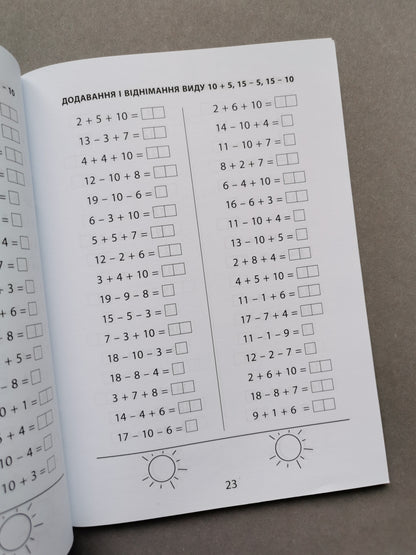 – 10
4 =
+ 3 =
+ 6 =
– 8 =
+ 5 =
– 8 =
0 + 1 =
+ 4 =
0 – 4 =
10 + 3 =
ДОДАВАННЯ І ВІДНІМАННЯ ВИДУ 10 + 5, 15 – 5, 15 – 10
2 + 5 + 10 =
13 – 3 + 7 =
4 + 4 + 10 =
12 – 10 + 8 =
19 – 10 – 6 =
6 – 3 + 10 =
5 + 5 + 7 =
12 – 2 + 6 =
3 + 4 + 10 =
19 – 9 – 8 =
15 – 5 – 3 =
7 – 3 + 10 =
18 – 10 – 3 =
18 – 8 – 4 =
3 + 7 + 8 =
14 – 4 + 6 =
17 – 10 – 6 =
2 + 6 + 10 =
14 – 10 + 4 =
11 – 10 + 7 =
8 + 2 + 7 =
6 – 4 + 10 =
16 – 6 + 3 =
11 – 10 + 4 =
13 – 10 + 5 =
2 + 8 + 4 =
4 + 5 + 10 =
11 – 1 + 6 =
17 – 7 + 4 =
11 – 1 – 9 =
12 – 2 – 7 =
2 + 6 + 10 =
18 – 8 + 7 =
9 + 1 + 6 =
23